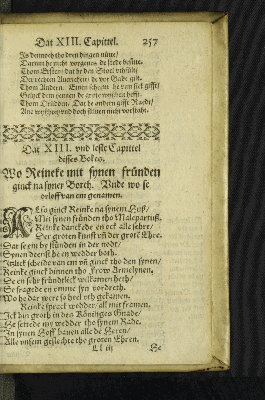 Dat XIII. Capittel. 257
As demede tho dren dingen nütte/
Darum he nicht vorgenes de stede benüm.
Thom Ersten: dat he den
Der rechten Avericheit de vor Gade gilt.
Thom Andern. Einen schem
Gelyck dem eennen de grote wysheit hefft.
Thom Drüdden. Dat he andern gifft Raedt/
Und wyßheit und doch sülven nicht vorstaht.
Dat XIII. vnd leste Capittel
desses Bokes.
Wo Reineke mit synen fründen
ginck na syner Borch. Vnde wo he
orloff van em genamen.
ALso ginck Reinke na synem Hoff/
Mit synen fründen tho Malepartuß,
Reineke danckede en ock alle sehre/
Der groten kunst vñ der grote Ehre.
Dat se em by stünden in der nodt/
Synen deenst he en wedder both.
Jtzlick scheide van em vñ ginck tho den synen/
Reinke ginck binnen tho Frow Armelynen.
De en sehr fründtlick welkamen hete/
Se fragede en vmme syn vordreth.
Wo he dar were so heel orh gekamen.
Reinke sprack wedder/ all mit framen.
Ick bin groth in des Köninges Gnade/
He settede my wedder tho synem Rade.
In synen Hoff bauen alle de Heren/
Alle vnsem geslechte tho groten Ehren.
Ll iij
He